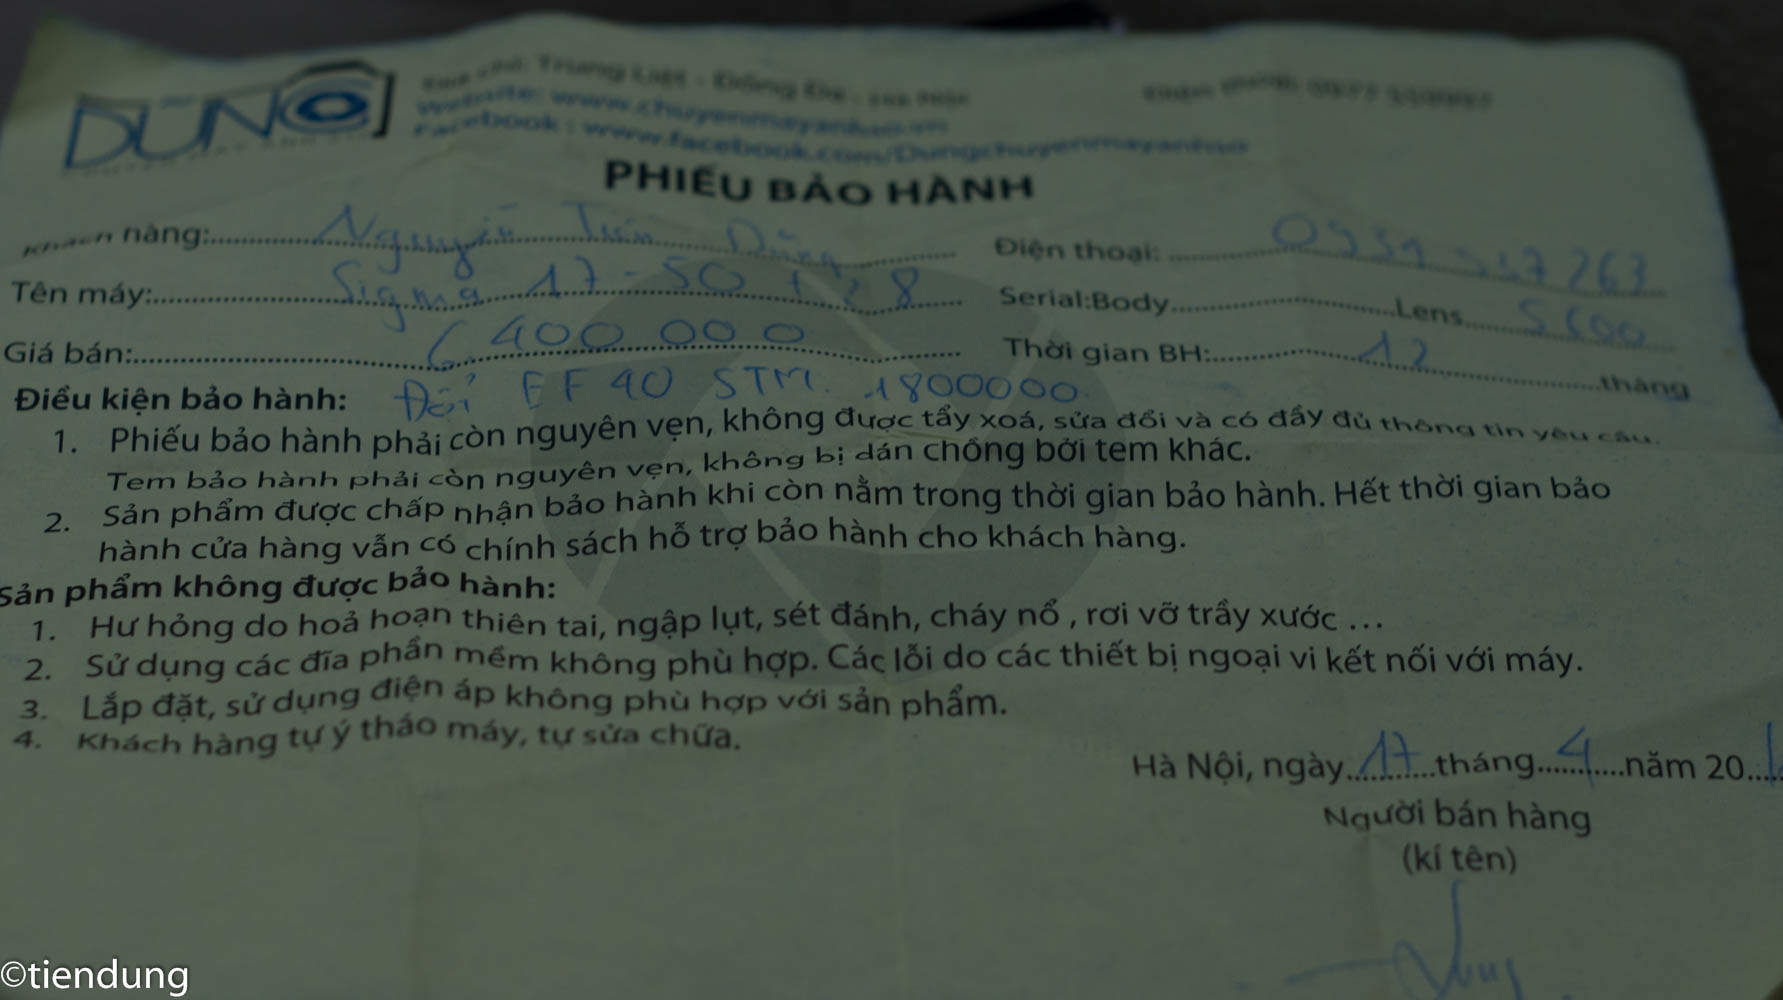 DŨNG
Trung Liệt - Đống Đa - Hà Nội
Website: www.chuyenmayanhso.vn
Facebook : www.facebook.com/Dungchuyenmayanhso
PHIẾU BẢO HÀNH
Khách hàng: Nguyễn Tiến Dũng Điện thoại:
Tên máy: Sigma 17-50 f 2 8 Serial:Body Lens
Giá bán: 6.400 000 Thời gian BH: 12 tháng
Điều kiện bảo hành: Đổi EF 40 STM. 1800000
1. Phiếu bảo hành phải còn nguyên vẹn, không được tẩy xoá, sửa đổi và có đầy đủ thông tin yêu cầu.
Tem bảo hành phải còn nguyên vẹn, không bị dán chồng bởi tem khác.
2. Sản phẩm được chấp nhận bảo hành khi còn nằm trong thời gian bảo hành. Hết thời gian bảo
hành cửa hàng vẫn có chính sách hỗ trợ bảo hành cho khách hàng.
Sản phẩm không được bảo hành:
1. Hư hỏng do hoả hoạn thiên tai, ngập lụt, sét đánh, cháy nổ , rơi vỡ trầy xước ...
2. Sử dụng các đĩa phần mềm không phù hợp. Các lỗi do các thiết bị ngoại vi kết nối với máy.
3. Lắp đặt, sử dụng điện áp không phù hợp với sản phẩm.
4. Khách hàng tự ý tháo máy, tự sửa chữa.
Hà Nội, ngày 17 tháng 4 năm 20
Người bán hàng
(kí tên)
©tiendung